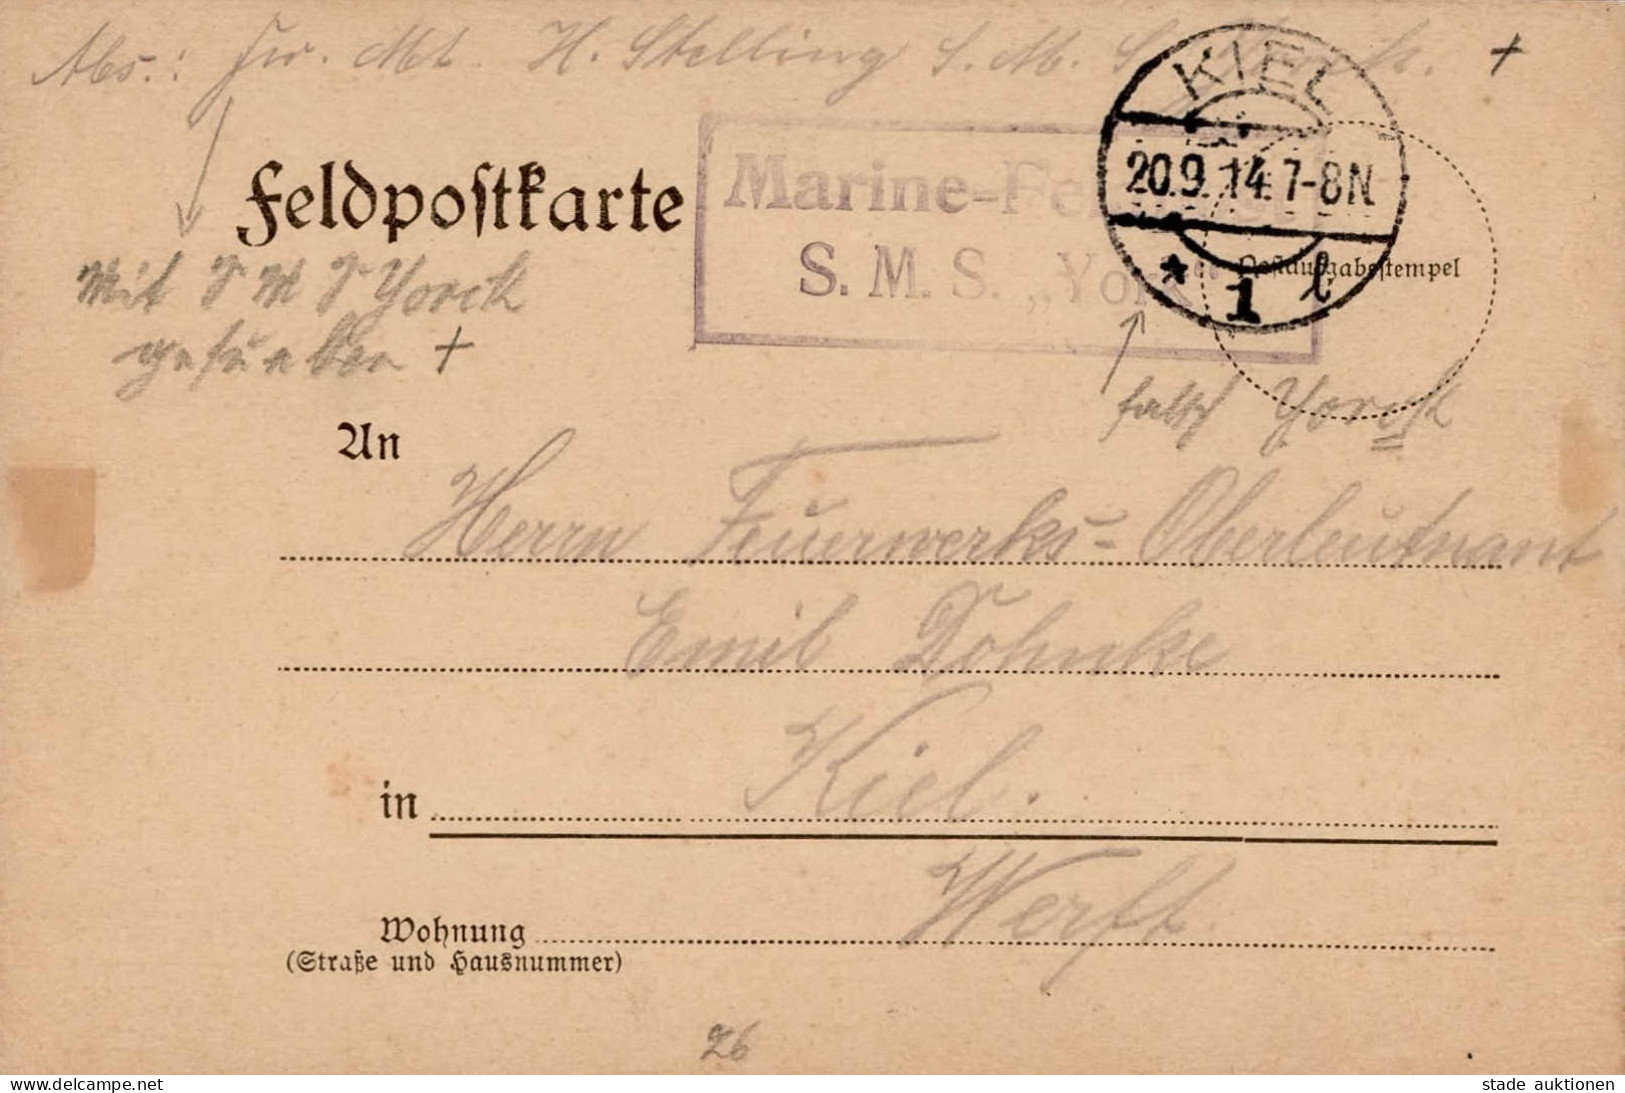 Abs.: Fw. Mt. H. Stelling S. M. S. Yorck. +
KIEL
20.9.14. 7-8N
* 1 l
Feldpostkarte
Marine-Fe
S. M. S. „York"
Postausgabestempel
Mit S M S Yorck
gesunken +
falsch Yorck
An
Herrn Feuerwerks-Oberleutnant
Emil Dohnke
in Kiel.
Werft
Wohnung
(Straße und Hausnummer)
26
delcampe.net
stade auktionen